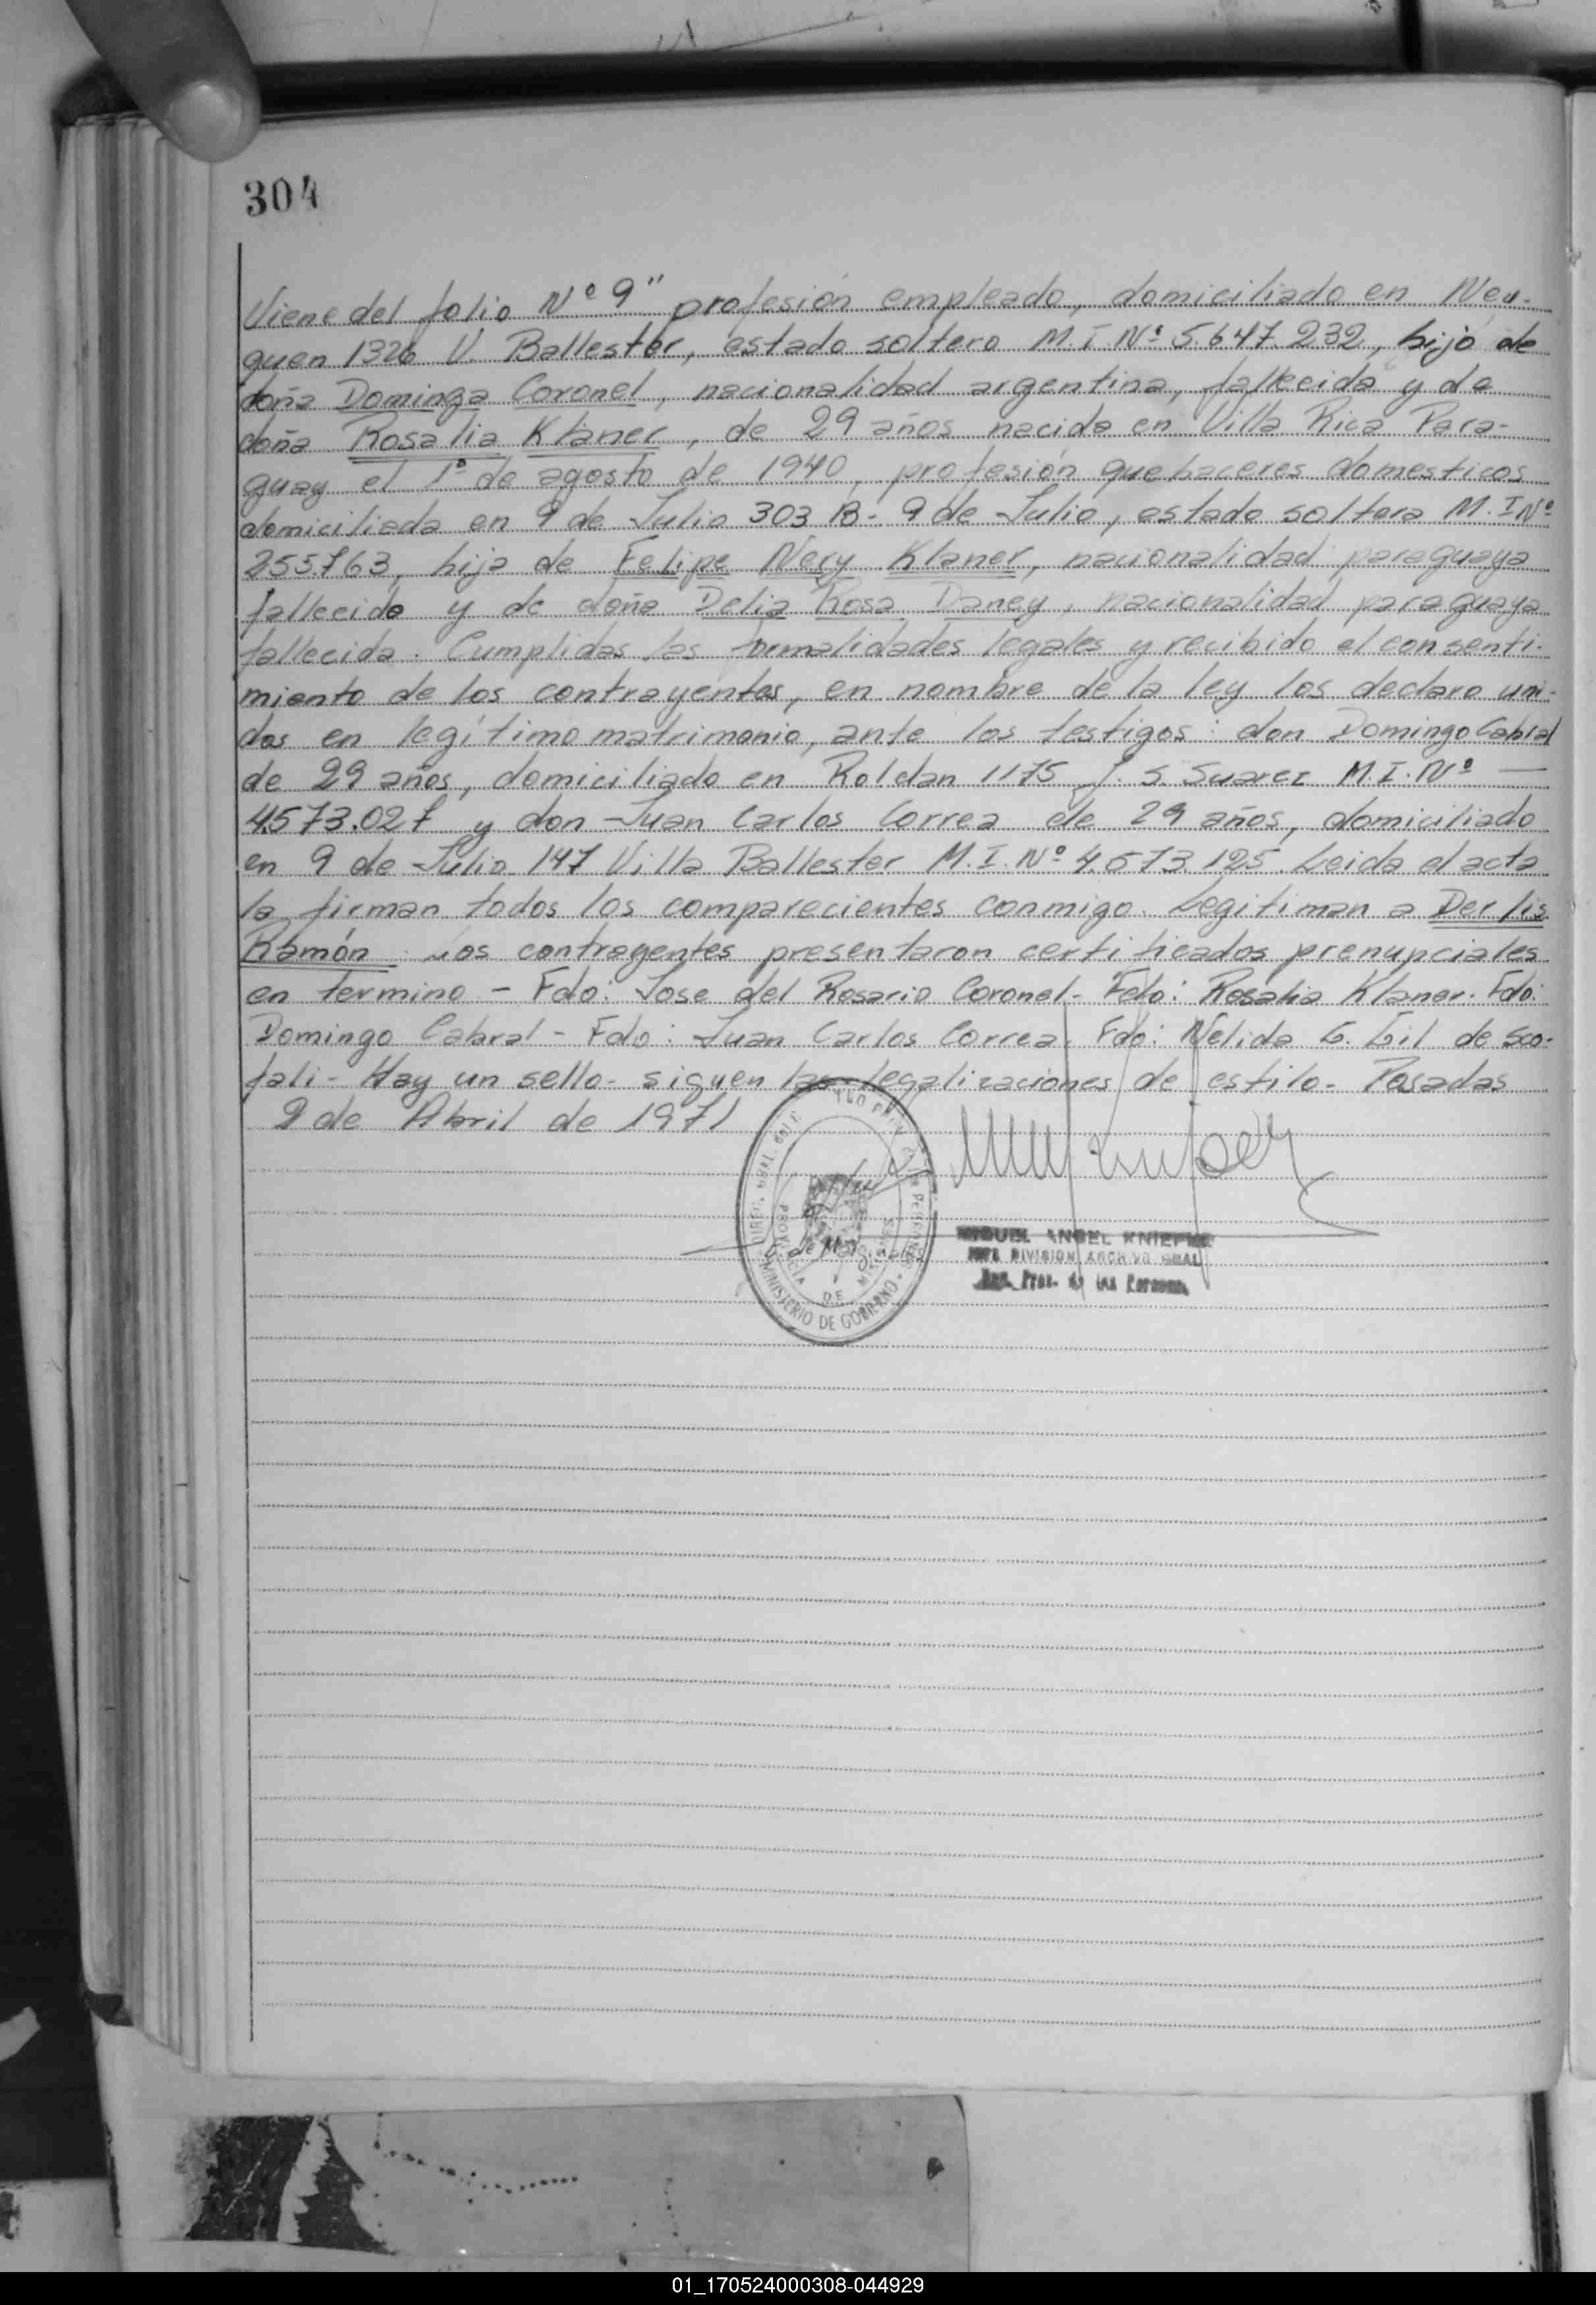 304
Viene del folio Nº 9" profesión empleado, domiciliado en Neu-
quen 1326 V. Ballester, estado soltero M.I Nº 5.647.232, hijo de
doña Dominga Coronel, nacionalidad argentina, fallecida y de
doña Rosalia Klaner, de 29 años nacida en Villa Rica Para-
guay el 1º de agosto de 1940, profesión quehaceres domesticos
domiciliada en 9 de Julio 303 B- 9 de Julio, estado soltera M.I Nº
255.763, hija de Felipe Nery Klaner, nacionalidad paraguaya
fallecido y de doña Delia Rosa Daney, nacionalidad paraguaya
fallecida. Cumplidas las formalidades legales y recibido el consenti-
miento de los contrayentes, en nombre de la ley los declaro uni-
dos en legítimo matrimonio, ante los testigos: don Domingo Cabral
de 29 años, domiciliado en Roldan 1175 J. S. Suarez M.I. Nº —
4.573.027 y don Juan Carlos Correa de 29 años, domiciliado
en 9 de Julio 147 Villa Ballester M.I. Nº 4.573.125. Leida el acta
la firman todos los comparecientes conmigo. Legitiman a Derlis
Ramón Los contrayentes presentaron certificados prenupciales
en termino - Fdo: Jose del Rosario Coronel - Fdo: Rosalia Klaner. Fdo:
Domingo Cabral - Fdo: Juan Carlos Correa. Fdo: Nelida G. Gil de Sco-
fali - Hay un sello - siguen las legalizaciones de estilo - Posadas
2 de Abril de 1971
PROVINCIA DE MISIONES
MINISTERIO DE GOBIERNO
MIGUEL ANGEL KNIEPER
JEFE DIVISION ARCHIVO GRAL
Reg. Prov. de las Personas
01_170524000308-044929